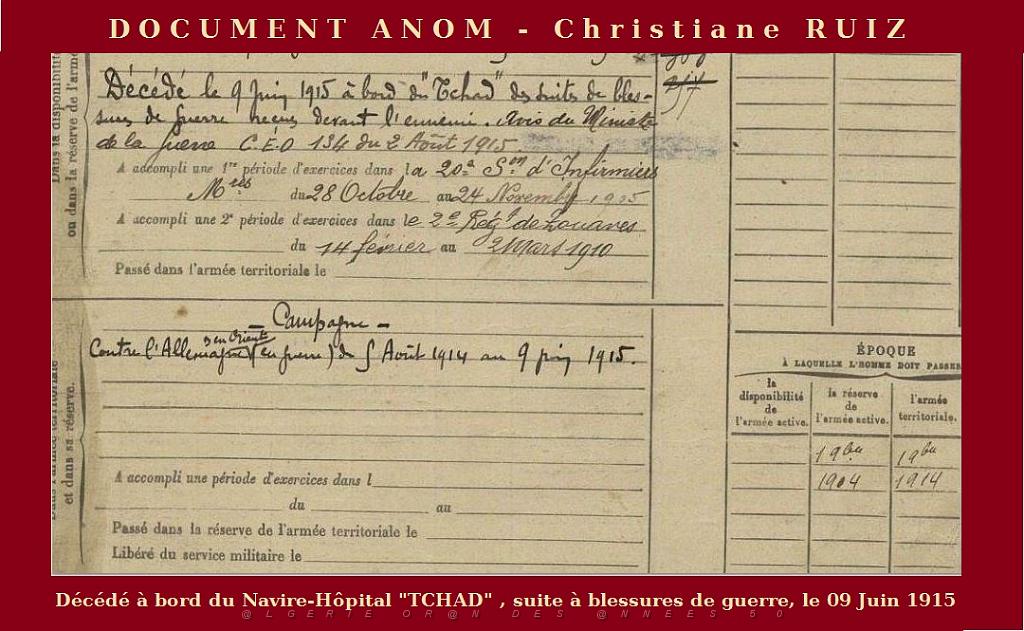 DOCUMENT ANOM - Christiane RUIZ
Dans la disponibilité
ou dans la réserve de l'armée
Décédé le 9 juin 1915 à bord du "Tchad" des suites de bles-
sures de guerre reçues devant l'ennemi. Avis du Ministre
de la guerre C.E.O 134 du 2 Août 1915
A accompli une 1re période d'exercices dans la 20e Son d'Infirmiers
Mres du 28 Octobre au 24 Novembre 1905
A accompli une 2e période d'exercices dans le 2e Régt de Zouaves
du 14 février au 2 Mars 1910
Passé dans l'armée territoriale le
- Campagne -
Contre l'Allemagne (en guerre) du 5 Août 1914 au 9 juin 1915.
et dans sa réserve.
A accompli une période d'exercices dans l
du au
Passé dans la réserve de l'armée territoriale le
Libéré du service militaire le
ÉPOQUE
À LAQUELLE L'HOMME DOIT PASSER
la disponibilité de l'armée active.
la réserve de l'armée active.
l'armée territoriale.
19bre 19bre
1904 1914
Décédé à bord du Navire-Hôpital "TCHAD" , suite à blessures de guerre, le 09 Juin 1915
@LGERIE OR@N DES @NNEES 50